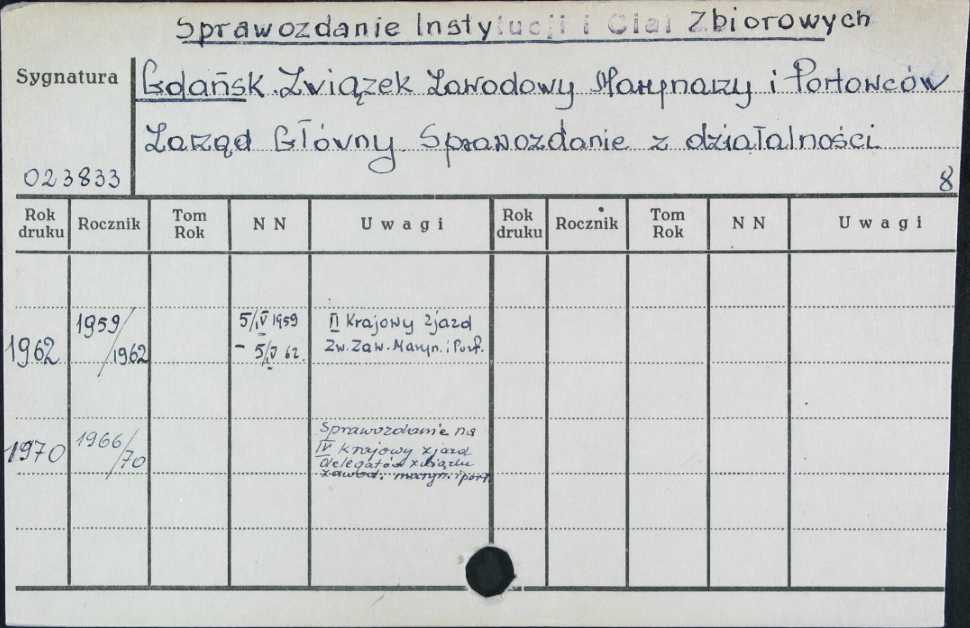 Sprawozdanie Instytucji i Ciał Zbiorowych
Sygnatura
Gdańsk. Związek Zawodowy Marynarzy i Portowców
Zarząd Główny Sprawozdanie z działalności
023833
8
Rok druku Rocznik Tom Rok NN Uwagi Rok druku Rocznik Tom Rok NN Uwagi
1962 1959/1962 5/IV 1959 - 5/V 62. II Krajowy Zjazd
Zw. Zaw. Maryn. i Port.
1970 1966/70 Sprawozdanie na
IV krajowy zjazd
delegatów związku
zawod. maryn. i port.